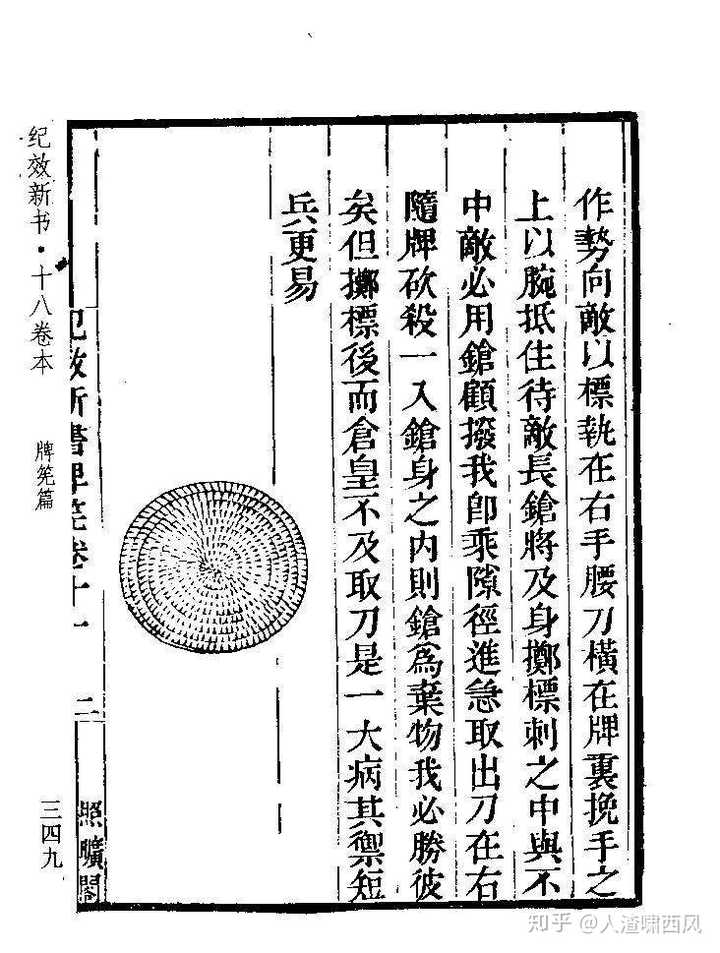 作勢向敵以標執在右手腰刀橫在牌裏挽手之
上以腕抵住待敵長鎗將及身擲標刺之中與不
中敵必用鎗顧撥我卽乘隙徑進急取出刀在右
隨牌砍殺一入鎗身之內則鎗爲棄物我必勝彼
矣但擲標後而倉皇不及取刀是一大病其禦短
兵更易
紀效新書牌筅卷十一
二
照曠閣
纪效新书·十八卷本
牌筅篇
三四九
知乎 @人渣啸西风